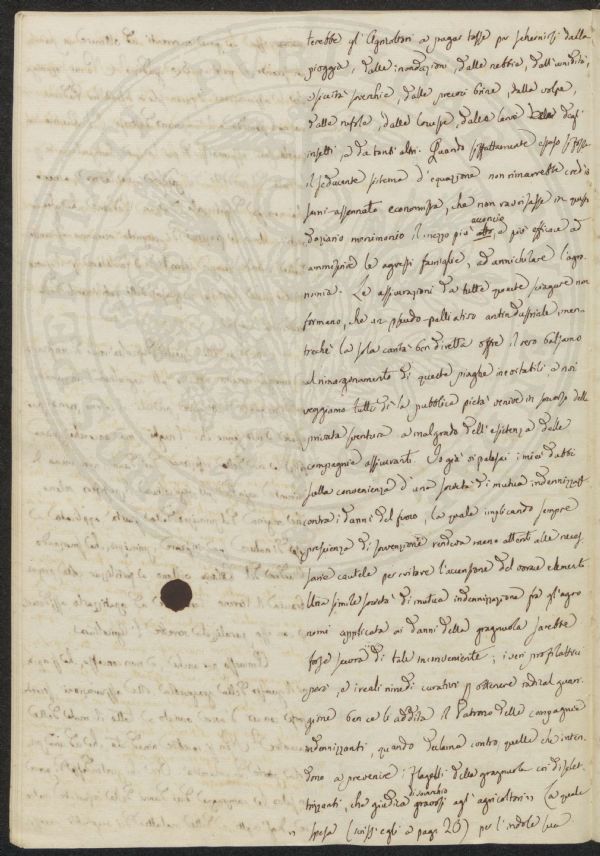 terebbe gl'Agricoltori a pagar tasse per schernirsi dalla
pioggia, dalle inondazioni, dalle nebbie, dall'umidità,
e siccità soverchie, dalle precoci brine, dalla volpe,
dalle rufole, dalle locuste, dalle larve degl'
insetti, e da tanti altri. Quando siffattamente esposo si fosse
il seducente sistema d'equazione non rimarrebbe cred'io
sani-assennato economista, che non ravvisasse in questo
doziario monimonio il mezzo più acconcio, e più efficace ad
ammiserire le agresti famiglie, ed annichilare l'agro-
nomia. Le assicurazioni da tutte queste sciagure non
formano, che un pseudo-palliativo antindustriale, men-
trechè la sola carità ben diretta offre il vero balsamo
al rimarginamento di queste piaghe inevitabili, e noi
veggiamo tutto dì la pubblica pietà venire in soccorso della
privata sventura a malgrado dell'esistenza delle
compagnie assicuranti. Io già vi palesai i miei dubbi
sulla convenienza d'una società di mutua indennizzaz.
contra i danni del fuoco, la quale implicando sempre
prescienza di sovvenzione renderà meno attenti alle neces-
sarie cautele per evitare l'accensione del vorace elemento
Una simile società di mutua indennizzazione fra gl'agro-
nomi applicata ai danni della gragnuola sarebbe
forse scevra di tale inconveniente; i veri profilattici
però, e i reali rimedi curativi p ottenere radical guari-
gione ben ce li addita il Patrono delle compagnie
indennizzanti, quando declama contro, quelle che inten-
dono a prevenire i flagelli della gragnuola coi di Elet-
trizzanti, che giudica di soverchio gravosi agl'agricoltori » (la quale
» spesa (scriss'egli a pag. 26) per l'indole sua